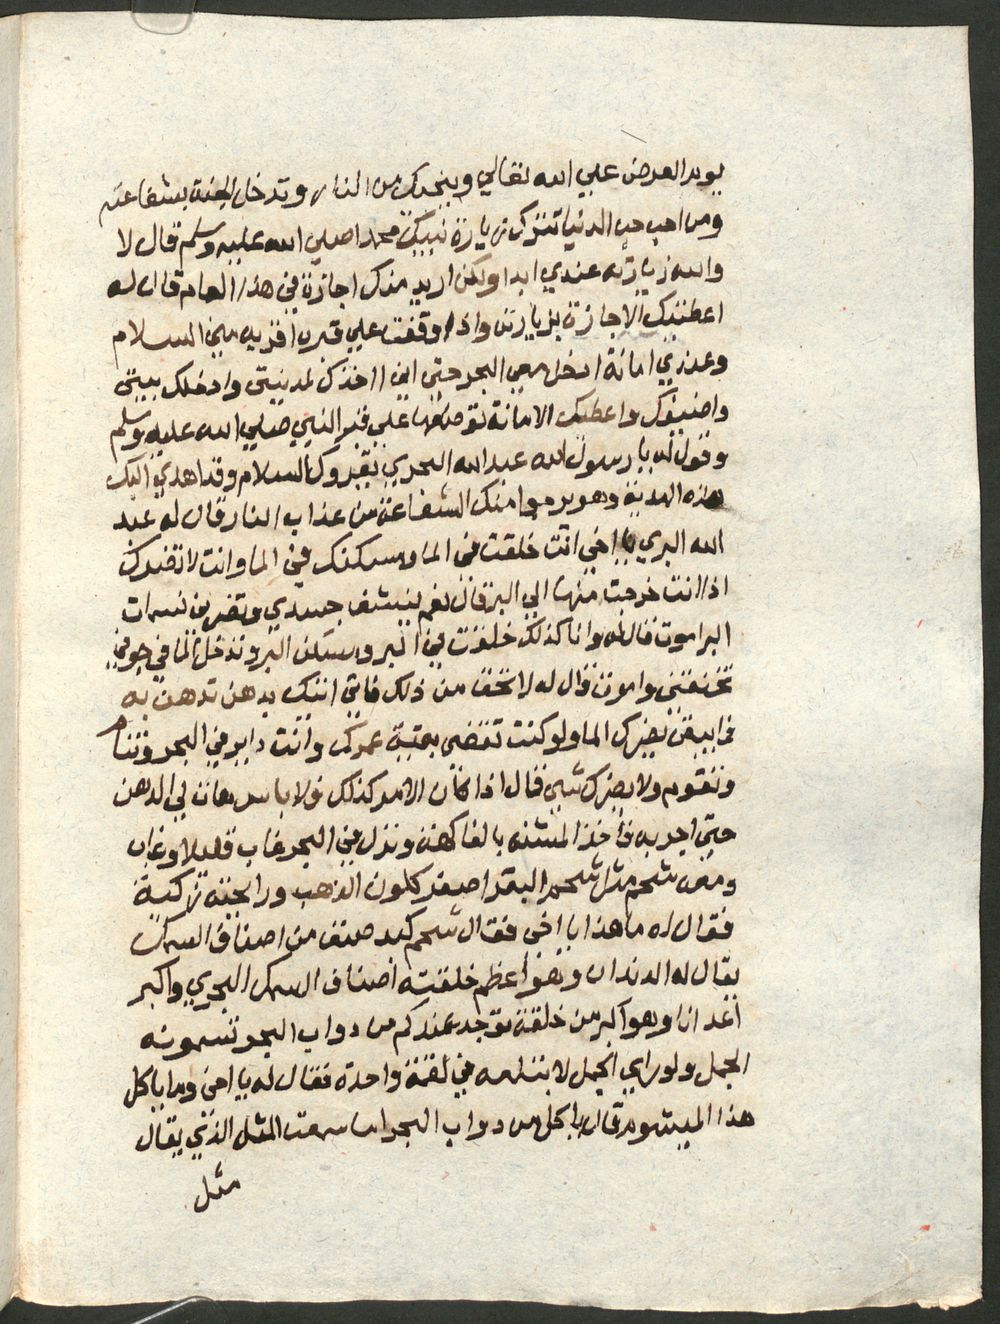 يوم العرض علي الله تعالي وينجيك من النار وتدخل الجنة بشفاعته
ومن احب حب الدنيا تترك زيارة نبيك محمد اصلي الله عليه وسلم قال لا
والله زيارته عندي ابدا ولكن اريد منك اجازة في هذا العام قال له
اعطيتك الاجازة بزيارته واذا وقفت علي قبره اقريه مني السلام
وعندي امانة ادخل معي البحر حتي اني ااخذك لمدينتي وادخلك بيتي
واضيفك واعطيك الامانة توضعها علي قبر النبي صلي الله عليه وسلم
وقول له يا رسول الله عبد الله البحري يقيروك السلام وقد اهدي اليك
هذه الهدية وهو يرجوا منك الشفاعة من عذاب النار قال له عبد
الله البري يا اخي انت خلقت في الما ومسكنك في الما وانت لا تضرك
اذا انت خرجت منها الي البر قال نعم ينشف جسدي وتضربني نسمات
البر اموت قال له وانا كذلك خلقت في البر ومسكني البر وتدخل الما في جوفي
تخنقني واموت قال له لا تخف من ذلك فاني اتيك بدهن تدهن به
فما يبقي يضرك الما ولو كنت تقضي بقية عمرك وانت داير في البحر وتنام
وتقوم ولا يضرك شي قال اذا كان الامر كذلك فلا باس هات لي الدهن
حتي اجربه فاخذ المشنه بالفاكهة ونزل في البحر غاب قليلا وعاد
ومعه شحم مثل شحم البقر اصفر كلون الذهب ورايحته زكية
فقال له ما هذا يا اخي فقال شحم كبد صنف من اصناف السمك
يقال له الدندان وهو اعظم خلقته اصناف السمك البحري واكبر
اعدانا وهو اكبر من خلقة توجد عندكم من دواب البحر تسمونه
الجمل ولو راي الجمل لابتلعه في لقمة واحدة فقال له يا اخي وما ياكل
هذا الميشوم قال ياكل من دواب البحر اما سمعت المثل الذي يقال
مثل